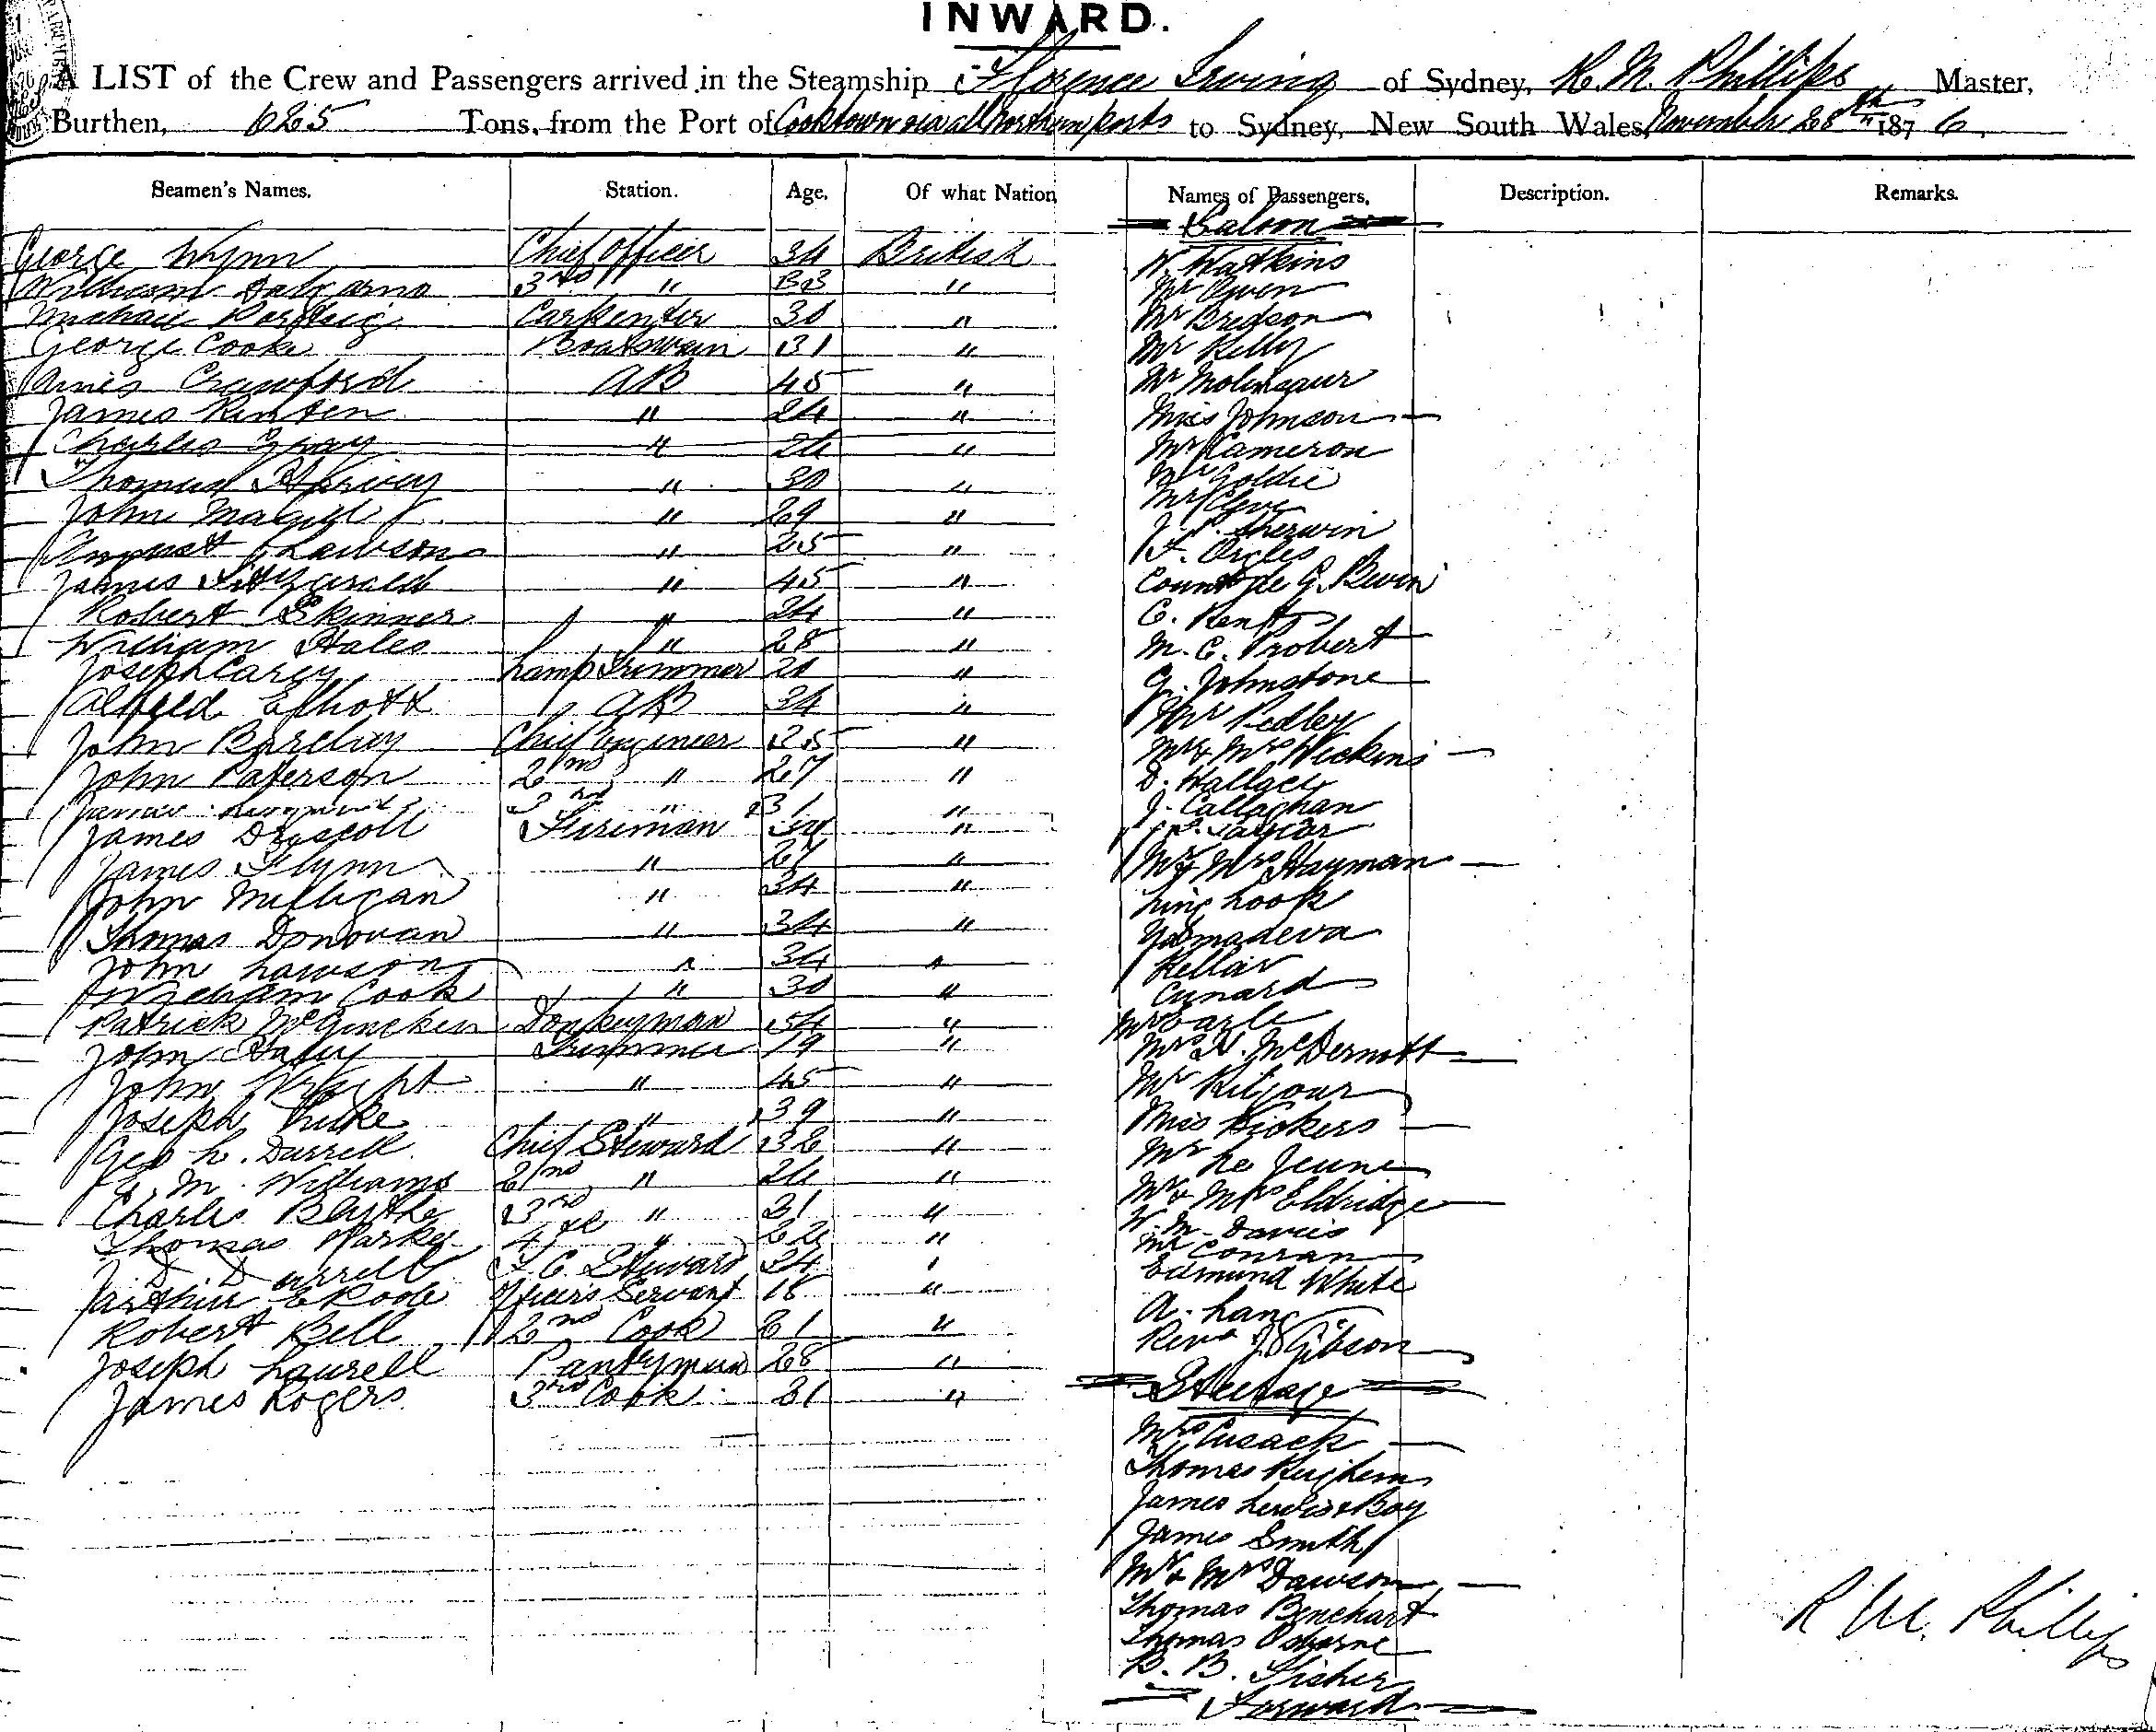 INWARD.
A LIST of the Crew and Passengers arrived in the Steamship Florence Irving of Sydney, R. M. Phillips Master,
Burthen, 685 Tons, from the Port of Cooktown via all Northern ports to Sydney, New South Wales, November 28th 1876
Seamen's Names. Station. Age. Of what Nation Names of Passengers, Description. Remarks.
Saloon
George Wynn Chief Officer 34 British W. Watkins
William 3rd " " Mr Owen
Michael Carpenter 30 " Mr Bredson
George Cooke Boatswain 31 " Mr Kelly
James Crawford AB 45 " Mr Molineaur
James " 24 " Miss Johnson
Charles Gray " 24 " Mr Cameron
Thomas " 30 " Mr Goldie
John " 29 " Mr Clive
August Lawson " 25 " J. P. Sherwin
James Fitzgerald " 45 " F.
Robert Skinner " 24 " Count de G.
William Hales " 28 " C. Kent
Joseph Carey Lamp Trimmer 20 " M. C. Probert
Alfred Elliott AB 34 " G. Johnstone
John Barclay Chief Engineer 35 " Mr Pedley
John Paterson 2nd " 27 " Mr & Mrs Hickins
James 3rd " 31 " D. Wallace
James Driscoll Fireman 34 " J. Callaghan
James Flynn " 27 " Taylor
John Milligan " 34 " Mr & Mrs Hayman
Thomas Donovan " 34 " Hing Hook
John Lawson " 34 " Yasmadeva
William Cook " 30 " Kellar
Patrick Donkeyman 54 " Cunard
John Trimmer 19 " Mr Earle
John Wright " 45 " Mrs N. McDermott
Joseph " 39 " Mr Kilgour
Geo L. Durrell Chief Steward 32 " Miss Vickers
M. Williams 2nd " 24 " Mr Le Jeune
Charles Blythe 3rd " 31 " Mr & Mrs Eldridge
Thomas Parkes 4th " 22 " W. M. Davies
Durrell F. C. Steward 24 " Mr Conran
Arthur E Poole Officer's Servant 18 " Edmund White
Robert Bell 2nd Cook 31 " A. Lang
Joseph Laurell Pantryman 28 " Revd J. Gibson
James Rogers 3rd Cook 31 "
Steerage
Mrs Cusack
Thomas
James Lewis & Boy
James Smith
Mr & Mrs Dawson
Thomas Benchart
Thomas Osborne
B. Fisher
Forward
R M. Phillips